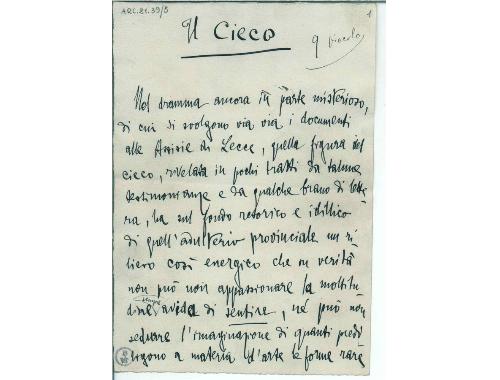 ARC.21.39/5
1
Il Cieco
9 piccolo
Nel dramma ancora in parte misterioso,
di cui si svolgono via via i documenti
alle Assisie di Lecce, quella figura del
cieco, rivelata in pochi tratti da talune
testimonianze e da qualche brano di lette-
ra, ha sul fondo retorico e idillico
di quell'adulterio provinciale un ri-
lievo così energico che in verità
non può non appassionare la moltitu-
dine sempre avida di sentire, né può non
sedurre l'imaginazione di quanti predi-
ligono a materia d'arte le forme rare